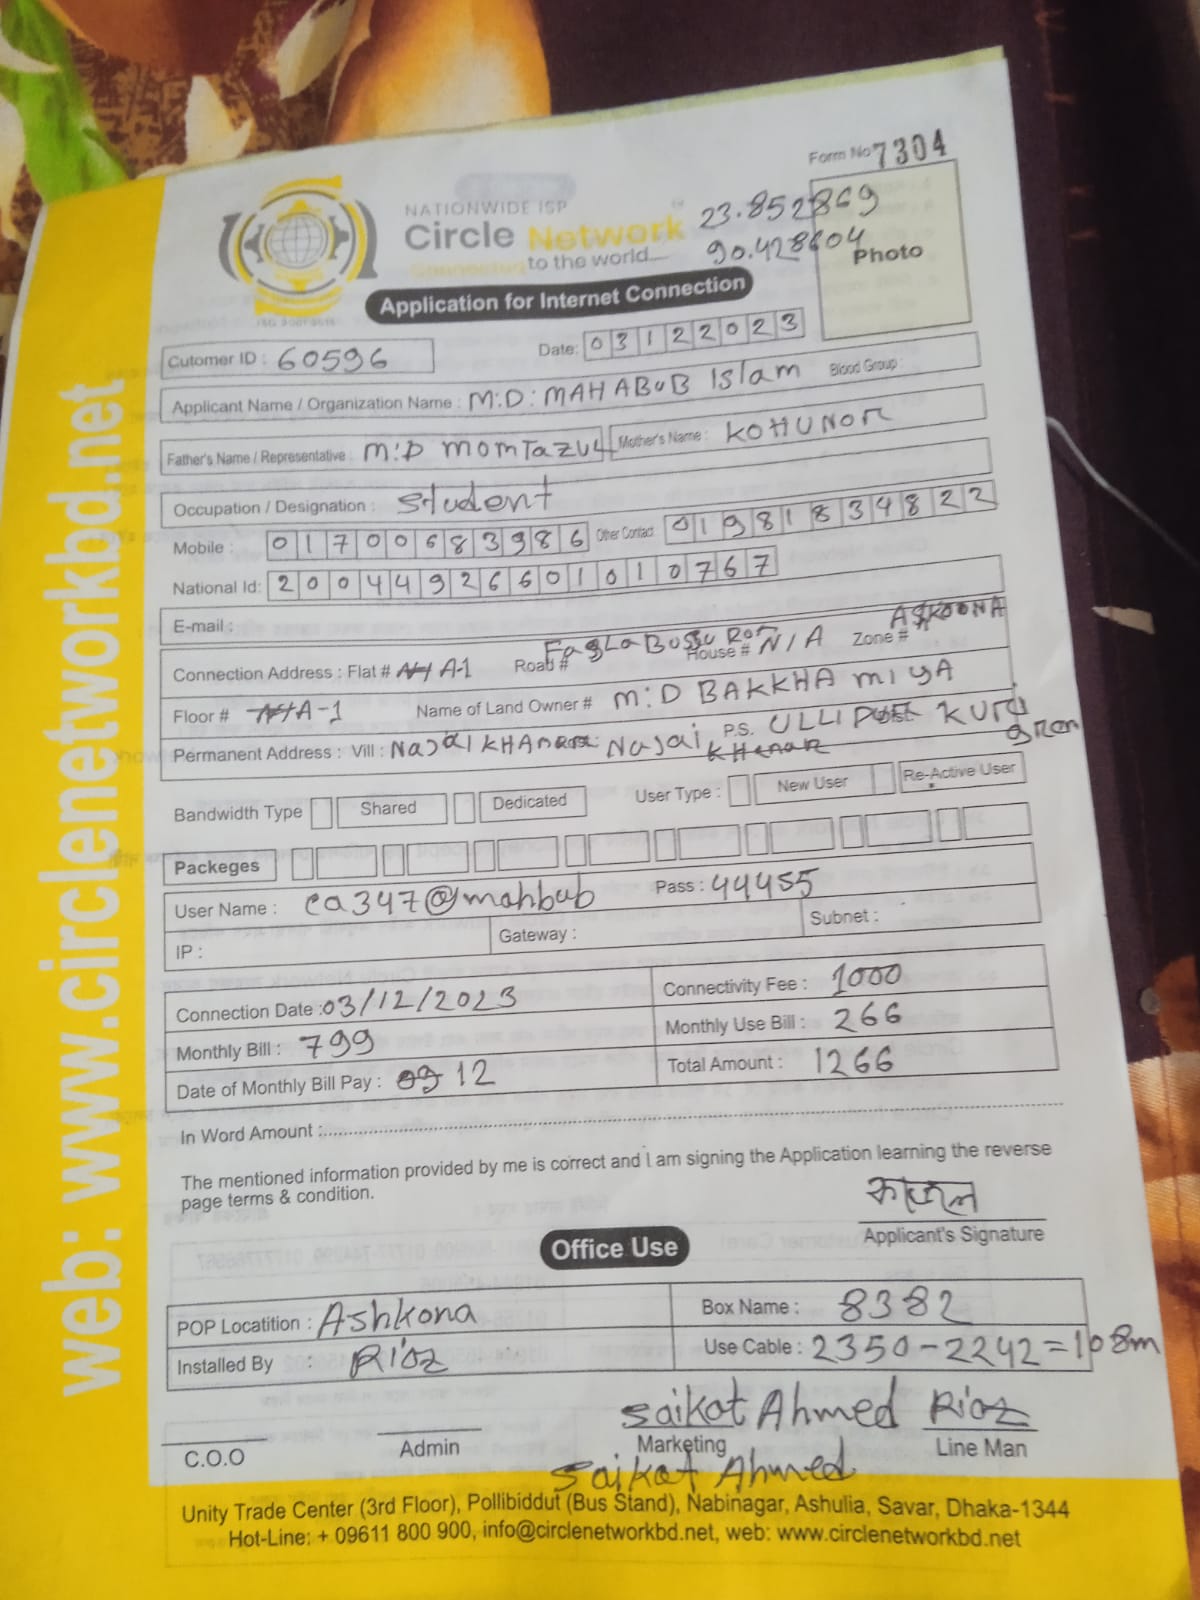 Form No 7304
NATIONWIDE ISP
Circle Network
Connected to the world....
23.852869
90.428604
Photo
Application for Internet Connection
Cutomer ID : 60596
Date: 03122023
Applicant Name / Organization Name : M:D: MAHABUB Islam Blood Group :
Father's Name / Representative : M:D MOMTAZUL Mother's Name : KOHUNOR
Occupation / Designation : Student
Mobile : 01700683986 Other Contact 01981834822
National Id: 20044926601010767
E-mail :
Connection Address : Flat # A-1 Road # House # N/A Zone # ASKOONA
Floor # A-1 Name of Land Owner # M:D BAKKHA MIYA
Permanent Address : Vill : P.S. KURI
gram
Bandwidth Type Shared Dedicated User Type : New User Re-Active User
Packeges
User Name : ca347@mahbub Pass : 44455
IP : Gateway : Subnet :
Connection Date : 03/12/2023 Connectivity Fee : 1000
Monthly Bill : 799 Monthly Use Bill : 266
Date of Monthly Bill Pay : 09 12 Total Amount : 1266
In Word Amount :
The mentioned information provided by me is correct and I am signing the Application learning the reverse
page terms & condition.
কাজল
Applicant's Signature
Office Use
POP Locatition : Ashkona Box Name : 8382
Installed By : Riaz Use Cable : 2350-2242=108m
Saikat Ahmed Riaz
C.O.O Admin Marketing Line Man
Saikat Ahmed
Unity Trade Center (3rd Floor), Pollibiddut (Bus Stand), Nabinagar, Ashulia, Savar, Dhaka-1344
Hot-Line: + 09611 800 900, info@circlenetworkbd.net, web: www.circlenetworkbd.net
web: www.circlenetworkbd.net